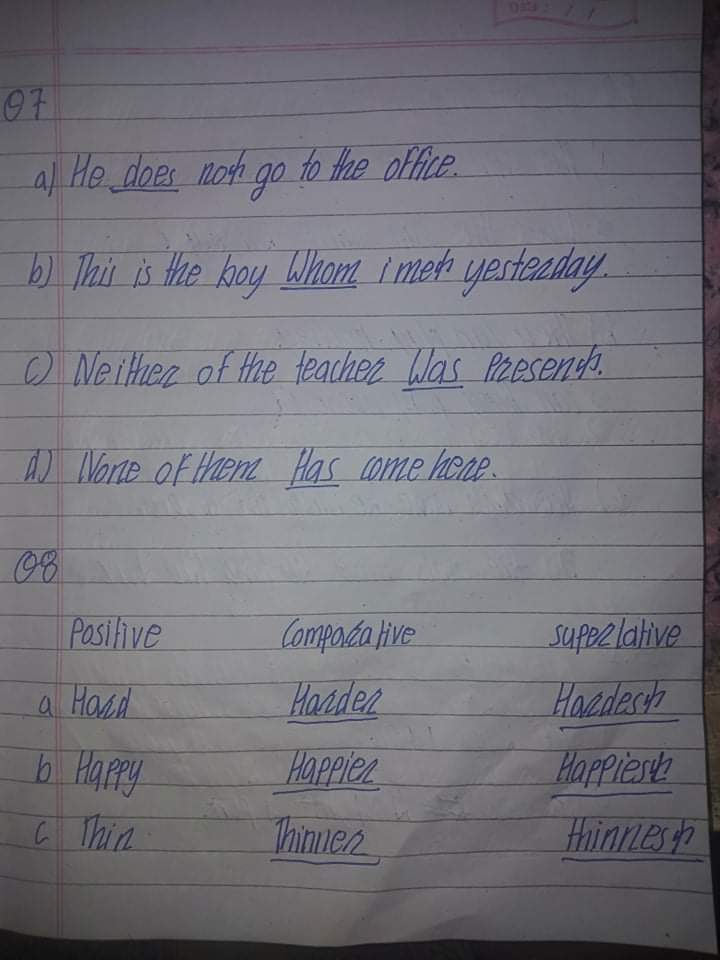 Date : / /
Q7
a) He does not go to the office.
b) This is the boy Whom i met yesterday.
c) Neither of the teacher Was Present.
d) None of them Has come here.
Q8
Positive Comparative superlative
a Hard Harder Hardest
b Happy Happier Happiest
c Thin Thinner thinnest